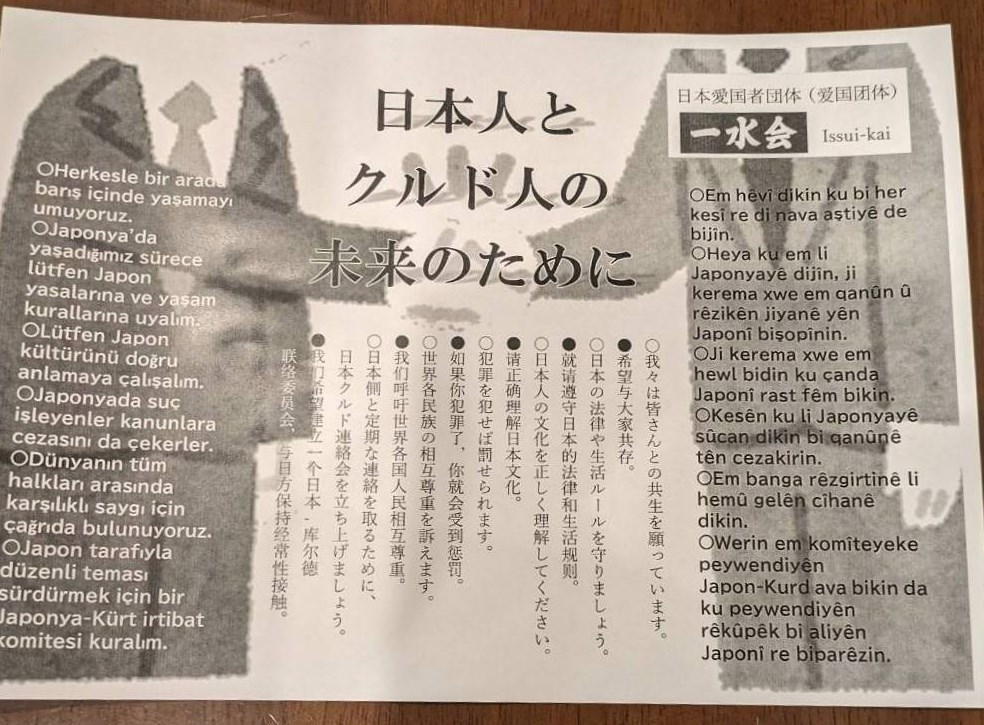 日本人と
クルド人の
未来のために
日本愛国者団体（爱国团体）
一水会 Issui-kai
○Herkesle bir arada
barış içinde yaşamayı
umuyoruz.
○Japonya'da
yaşadığımız sürece
lütfen Japon
yasalarına ve yaşam
kurallarına uyalım.
○Lütfen Japon
kültürünü doğru
anlamaya çalışalım.
○Japonyada suç
işleyenler kanunlara
cezasını da çekerler.
○Dünyanın tüm
halkları arasında
karşılıklı saygı için
çağrıda bulunuyoruz.
○Japon tarafıyla
düzenli teması
sürdürmek için bir
Japonya-Kürt irtibat
komitesi kuralım.
○我々は皆さんとの共生を願っています。
●希望与大家共存。
○日本の法律や生活ルールを守りましょう。
●就请遵守日本的法律和生活规则。
○日本人の文化を正しく理解してください。
●请正确理解日本文化。
○犯罪を犯せば罰せられます。
●如果你犯罪了，你就会受到惩罚。
○世界各民族の相互尊重を訴えます。
●我们呼吁世界各国人民相互尊重。
○日本側と定期な連絡を取るために、
日本クルド連絡会を立ち上げましょう。
●我们希望建立一个日本-库尔德
联络委员会，与日方保持经常性接触。
○Em hêvî dikin ku bi her
kesî re di nava aştiyê de
bijîn.
○Heya ku em li
Japonyayê dijîn, ji
kerema xwe em qanûn û
rêzikên jiyanê yên
Japonî bişopînin.
○Ji kerema xwe em
hewl bidin ku çanda
Japonî rast fêm bikin.
○Kesên ku li Japonyayê
sûcan dikin bi qanûnê
tên cezakirin.
○Em banga rêzgirtinê li
hemû gelên cîhanê
dikin.
○Werin em komîteyeke
peywendiyên
Japon-Kurd ava bikin da
ku peywendiyên
rêkûpêk bi aliyên
Japonî re biparêzin.